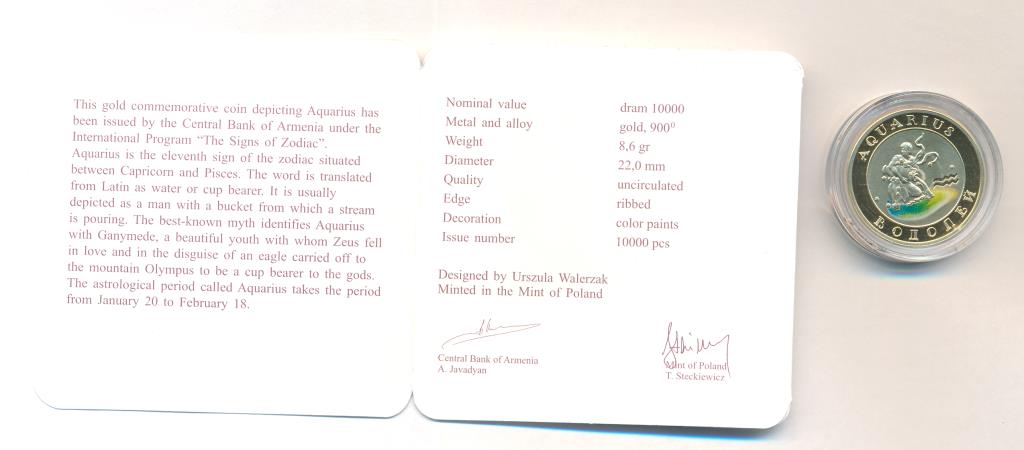 This gold commemorative coin depicting Aquarius has
been issued by the Central Bank of Armenia under the
International Program “The Signs of Zodiac”.
Aquarius is the eleventh sign of the zodiac situated
between Capricorn and Pisces. The word is translated
from Latin as water or cup bearer. It is usually
depicted as a man with a bucket from which a stream
is pouring. The best-known myth identifies Aquarius
with Ganymede, a beautiful youth with whom Zeus fell
in love and in the disguise of an eagle carried off to
the mountain Olympus to be a cup bearer to the gods.
The astrological period called Aquarius takes the period
from January 20 to February 18.
Nominal value dram 10000
Metal and alloy gold, 900⁰
Weight 8,6 gr
Diameter 22,0 mm
Quality uncirculated
Edge ribbed
Decoration color paints
Issue number 10000 pcs
Designed by Urszula Walerzak
Minted in the Mint of Poland
Central Bank of Armenia
A. Javadyan
Mint of Poland
T. Steckiewicz
AQUARIUS
ВОДОЛЕЙ